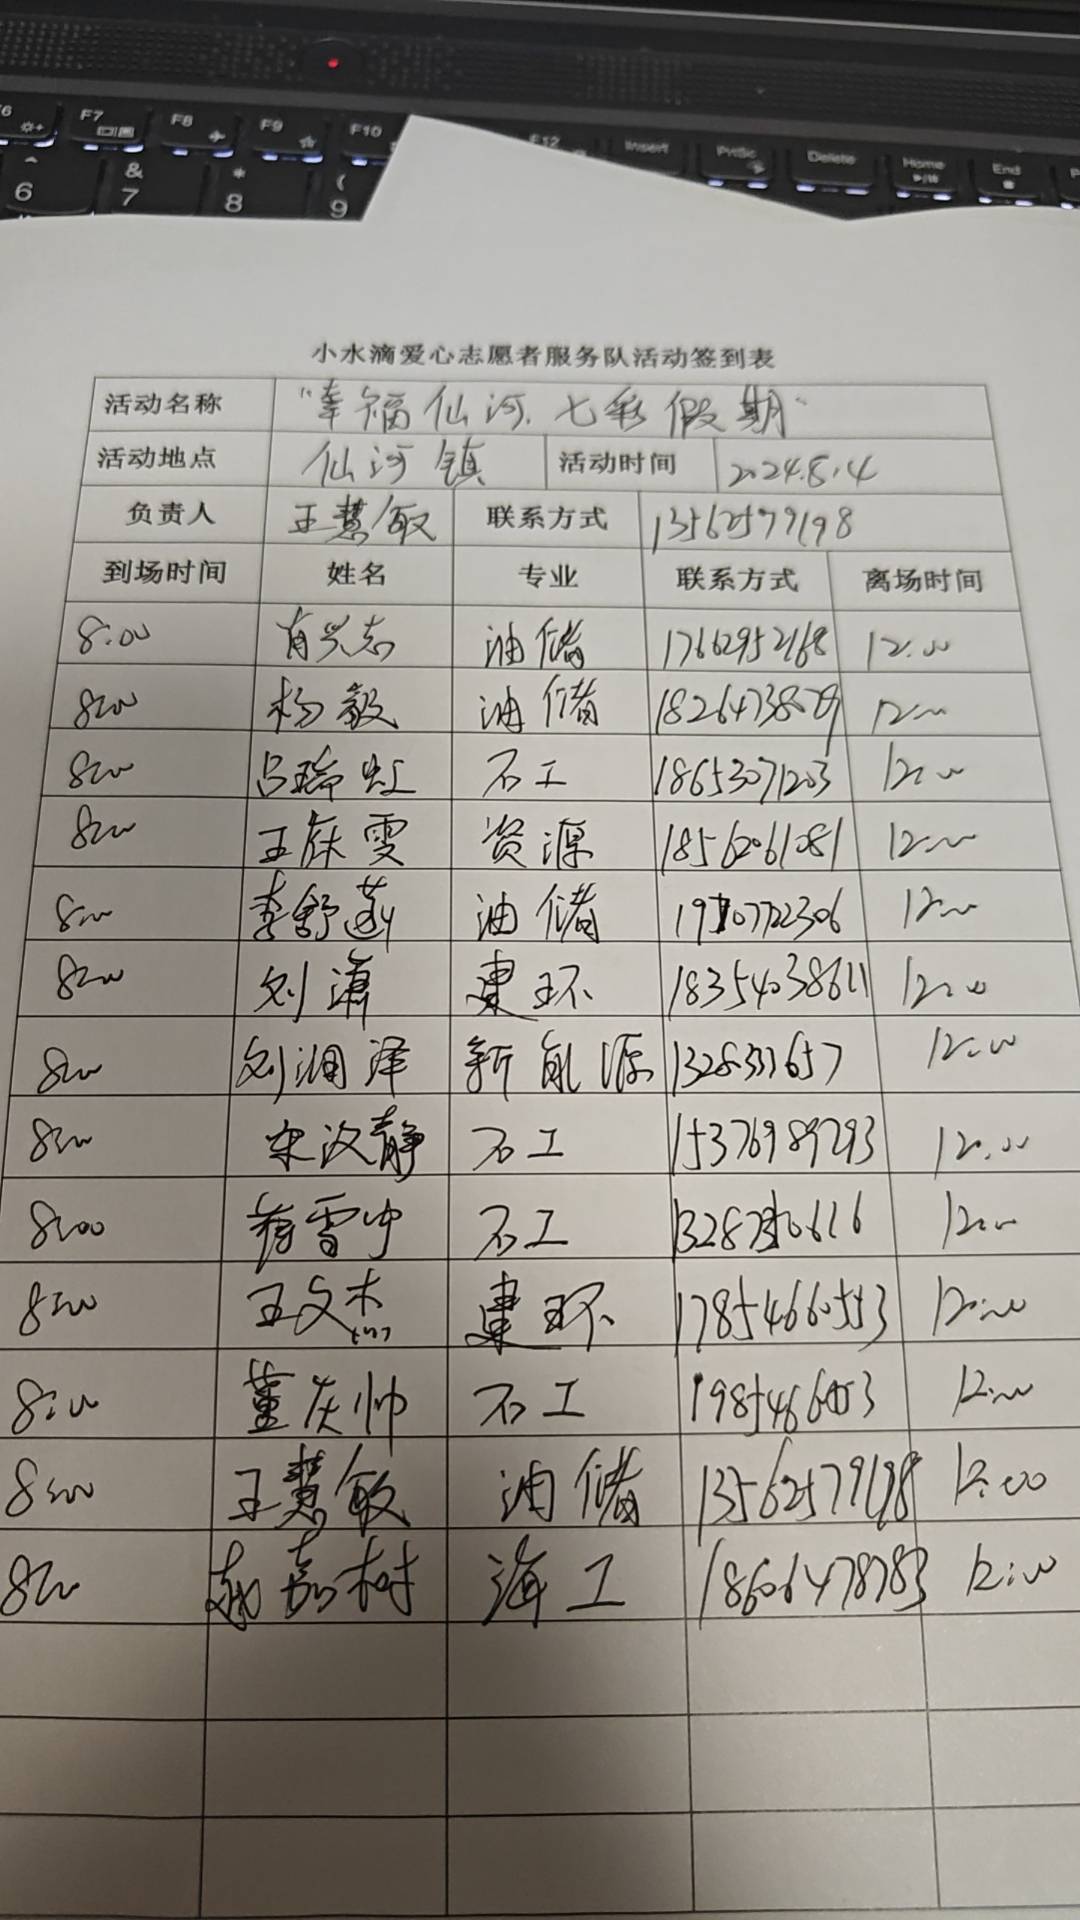 F7 F8 F9 F10 F12 Insert PrtSc Delete Home End
6 & 7 * 8 ( 9
小水滴爱心志愿者服务队活动签到表
活动名称 "幸福仙河.七彩假期"
活动地点 仙河镇 活动时间 2024.8.4
负责人 王慧敏 联系方式 13562579198
到场时间 姓名 专业 联系方式 离场时间
8:00 肖兴志 油储 17662952168 12:00
8:00 杨毅 油储 12:00
8:00 吕瑞虹 石工 18653071203 12:00
8:00 王庥雯 资源 18562061081 12:00
8:00 李舒菡 油储 12:00
8:00 刘潇 建环 18354038611 12:00
8:00 刘润泽 新能源 12:00
8:00 宋汶静 石工 15376989293 12:00
8:00 石工 12:00
8:00 王文杰 建环 17854660553 12:00
8:00 董庆帅 石工 12:00
8:00 王慧敏 油储 13562579198 12:00
8:00 嘉树 海工 18606478783 12:00